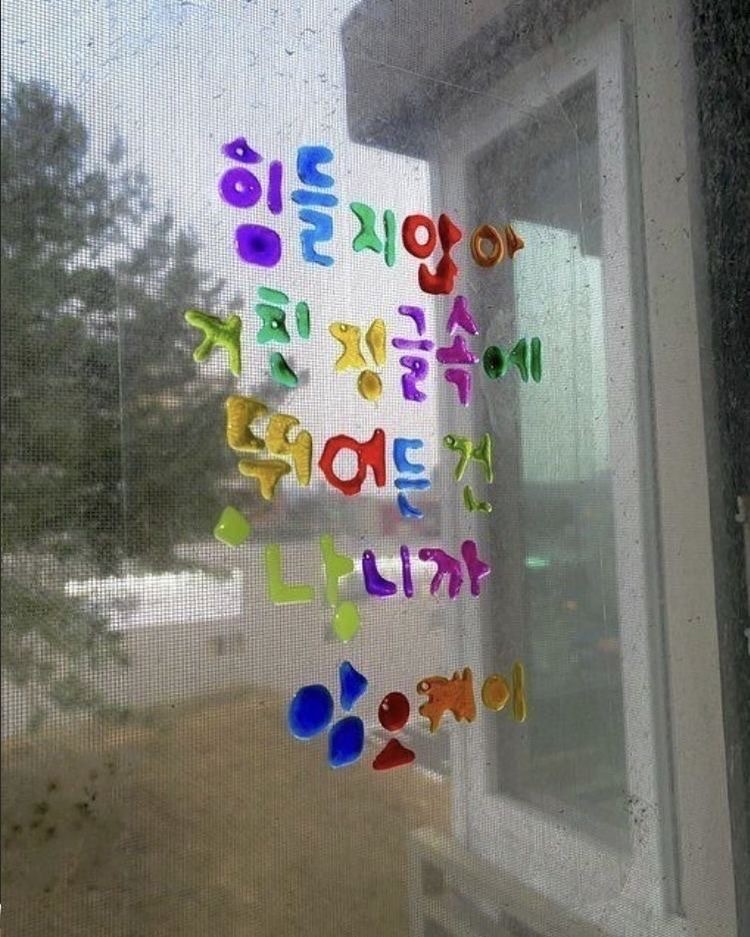 힘들지않아
거친 정글속에
뛰어든건
나니까
암오케이